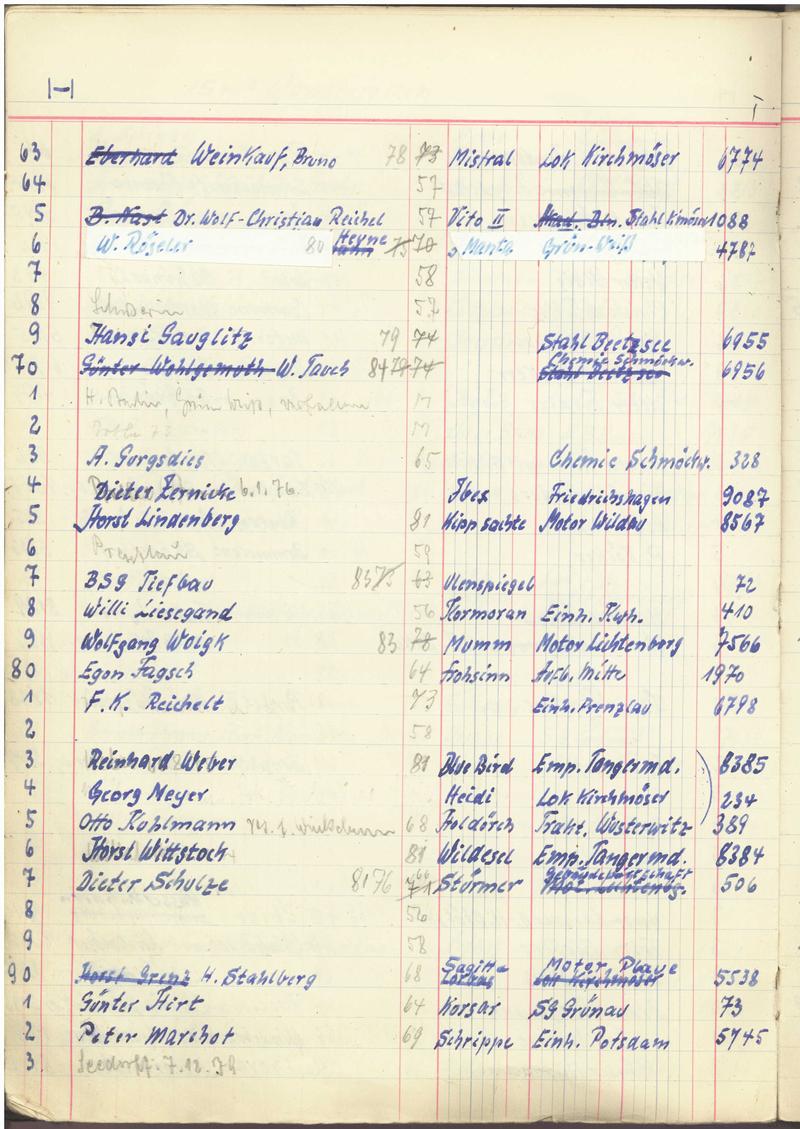 H
I
63 Eberhard Weinkauf, Bruno 78 73 Mistral Lok Kirchmöser 6774
64 57
5 B. Nast Dr. Wolf-Christian Reichel 57 Vito II Akad. Bln. Stahl Kmöser 1088
6 W. Röseler 80 Heyne Jahn 75 70 Manta Grün-Weiß 4787
7 58
8 Schwerin 57
9 Hansi Gauglitz 79 74 Stahl Beetzsee 6955
70 Günter Wohlgemuth W. Tauch 84 78 74 Chemie Schmöckw. Stahl Beetzsee 6956
1 H. Berlin, Grün Weiß,
2
3 A. Gorgsdies 65 Chemie Schmöckw. 328
4 Dieter Zernicke 6.1.76. Ibex Friedrichshagen 9087
5 Horst Lindenberg 81 Kipp sachte Motor Wildau 8567
6 Prenzlau 59
7 BSG Tiefbau 83 75 63 Ulenspiegel 72
8 Willi Liesegand 56 Kormoran Einh. Kwh. 410
9 Wolfgang Woigk 83 78 Mumm Motor Lichtenberg 7566
80 Egon Fagsch 64 Frohsinn Aufb. Mitte 1970
1 F.K. Reichelt 73 Einh. Prenzlau 6798
2 58
3 Reinhard Weber 81 Blue Bird Emp. Tangermd. 8385
4 Georg Meyer Heidi Lok Kirchmöser 234
5 Otto Kohlmann res. f. 68 Holdörch Trakt. Wusterwitz 389
6 Horst Wittstock 81 Wildesel Emp. Tangermd. 8384
7 Dieter Schulze 81 76 71 66 Stürmer Mot. Lichtenbg. 506
8 56
9 58
90 Horst Grenz H. Stahlberg 68 Sagitta Motor Plaue Lok Kirchmöser 5538
1 Günter Hirt 64 Korsar SG Grünau 73
2 Peter Marchot 69 Schrippe Einh. Potsdam 5745
3 Seedorff. 7.12.79